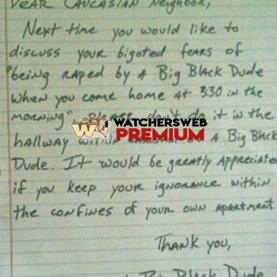 DEAR CAUCASIAN NEIGHBOR,
NEXT TIME YOU WOULD LIKE TO
DISCUSS YOUR BIGOTED FEARS OF
"BEING RAPED BY A BIG BLACK DUDE
WHEN YOU COME HOME AT 330 IN THE
MORNING" PLEASE DON'T DO IT IN THE
WATCHERSWEB
PREMIUM
HALLWAY WITHIN OF A BIG BLACK
DUDE. IT WOULD BE GREATLY APPRECIATED
IF YOU KEEP YOUR IGNORANCE WITHIN
THE CONFINES OF YOUR OWN APARTMENT
THANK YOU,
BIG BLACK DUDE